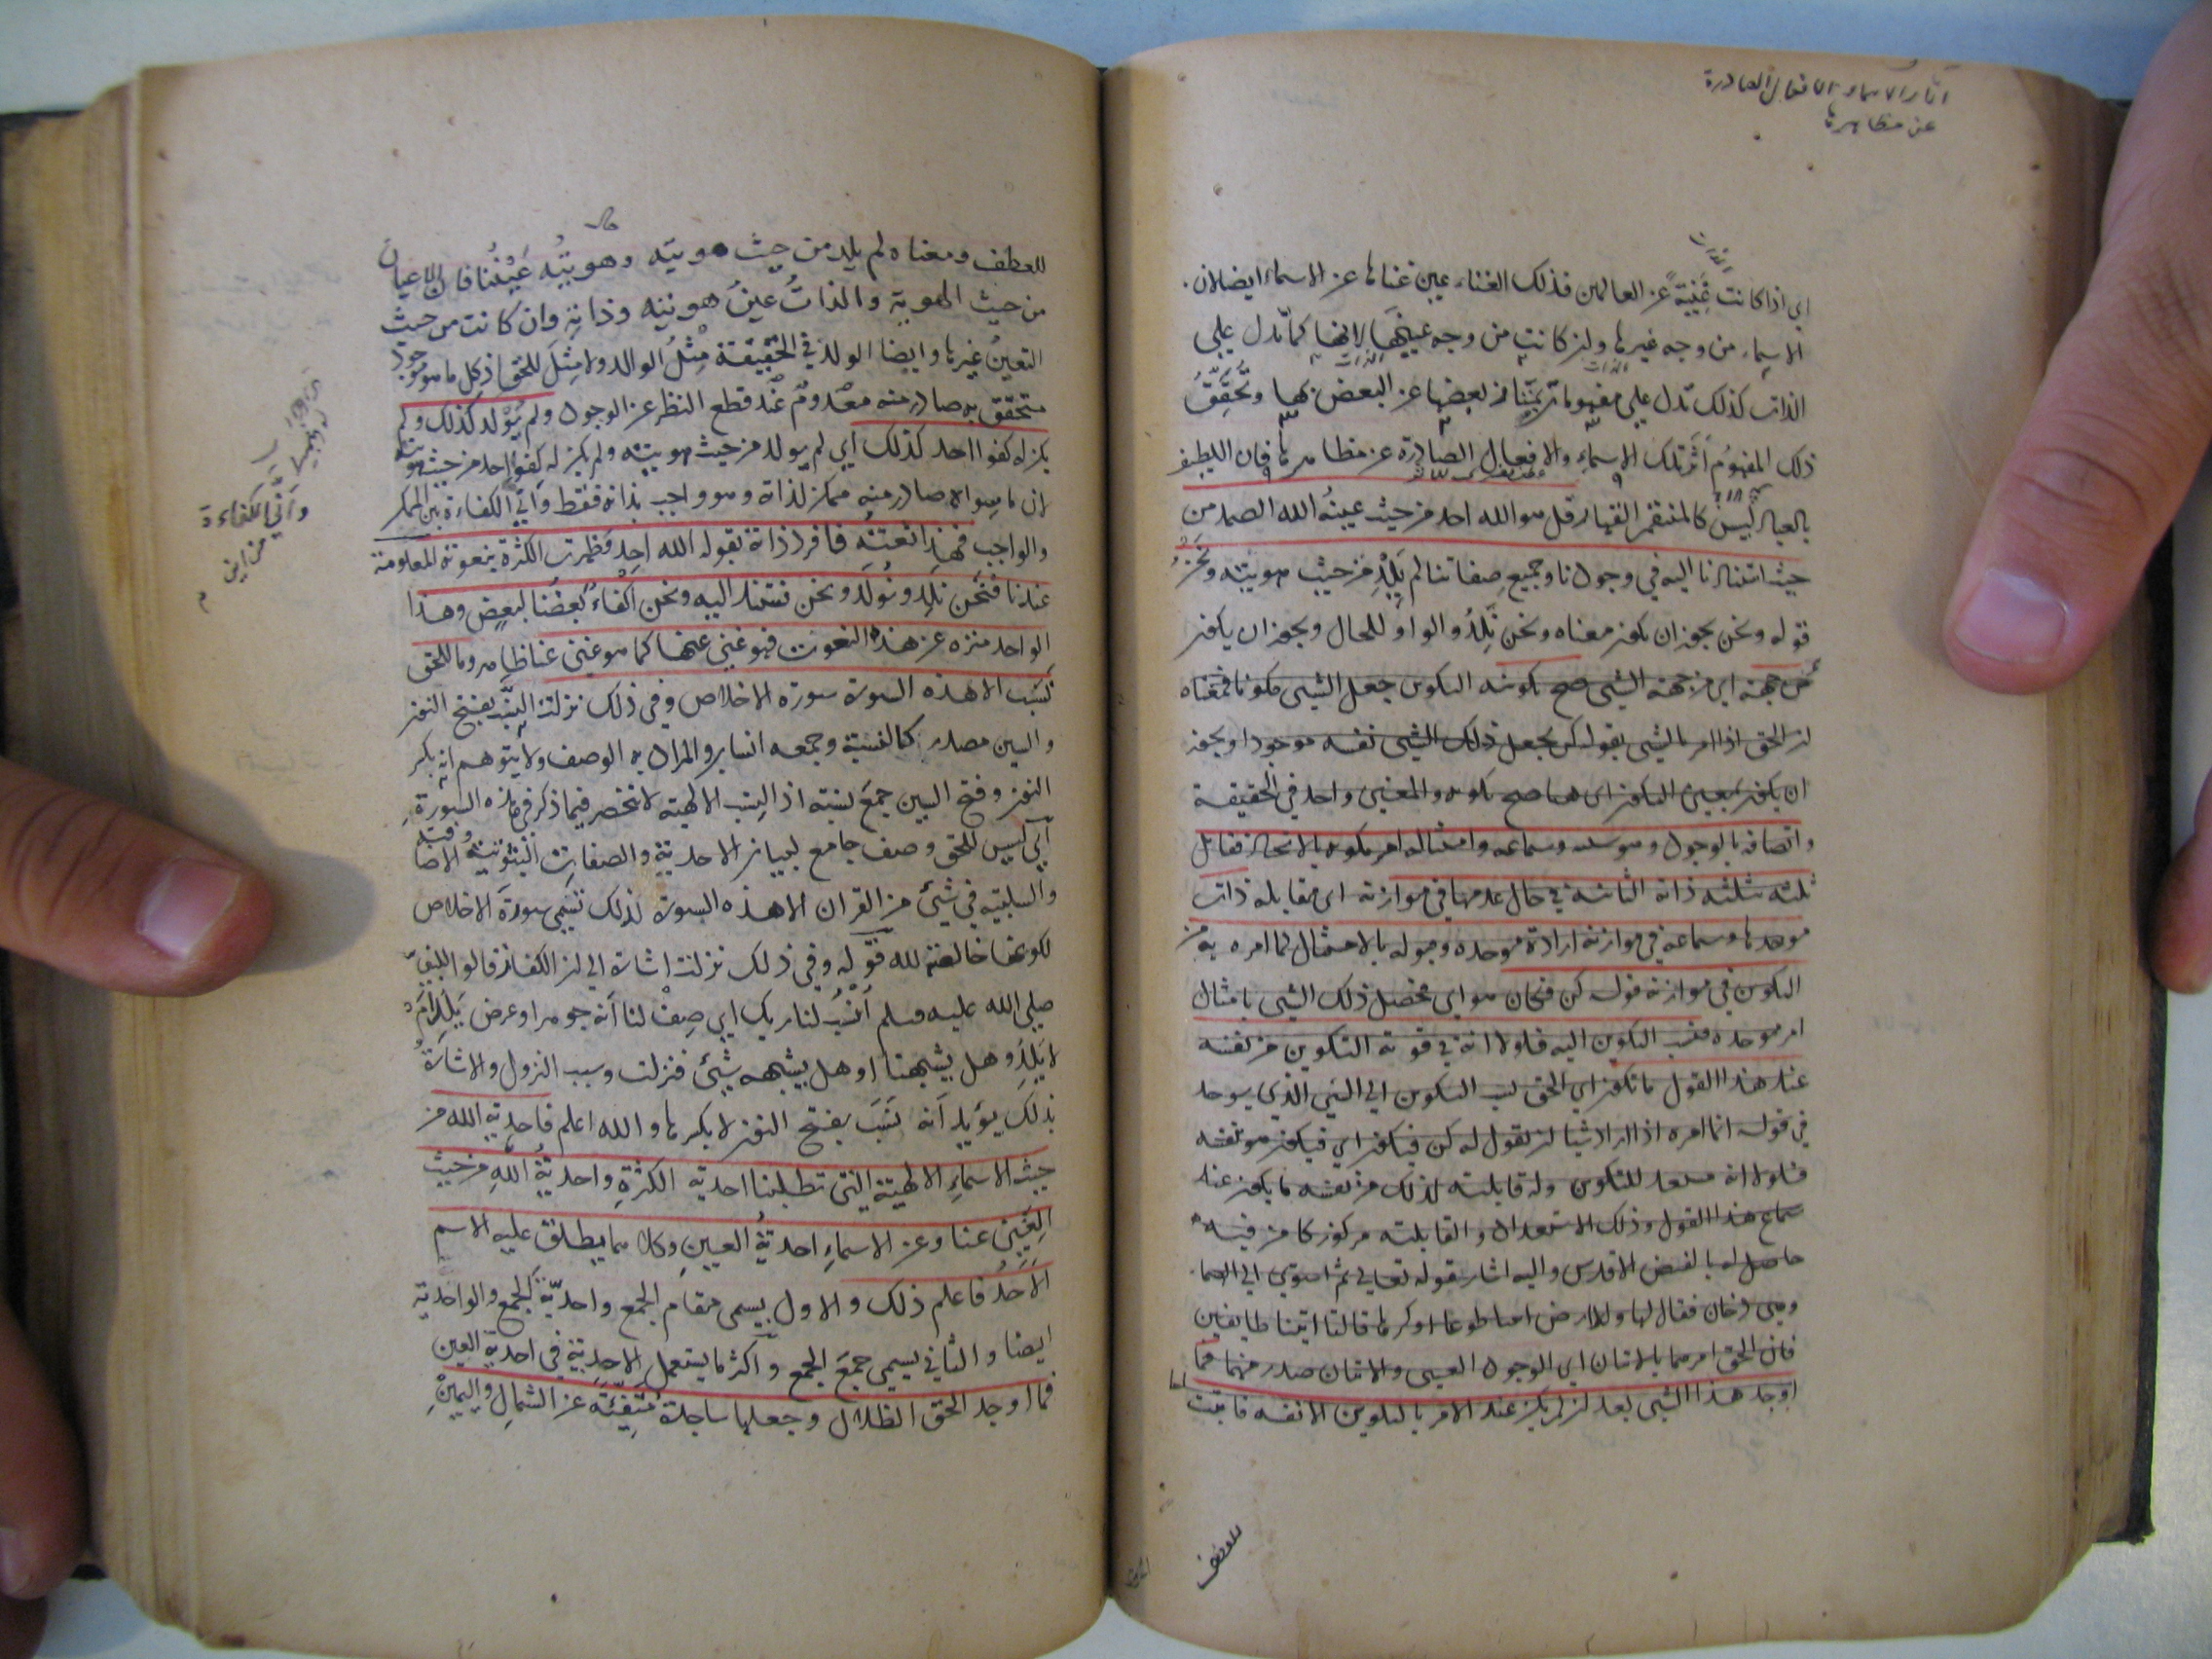 آثار الاسماء الافعال الصادرة
عن مظاهرها
الذات
اي اذا كانت غنية عن العالمين فذلك الغناء عين غنائها عن الاسماء ايضا لان
الاسماء من وجه غيرها وان كانت من وجه عينها لانها كما تدل علي
الذات كذلك تدل علي مفهومات يمتاز بعضها عن البعض بها وتحقق
ذلك المفهوم اثر تلك الاسماء والافعال الصادرة عن مظاهرها فان اللطيف
بالعباد ليس كالمنتقم القهار قل هو الله احد من حيث عينه الله الصمد من
حيث استنادنا اليه في وجودنا وجميع صفاتنا لم يلد من حيث هويته ونحن
قوله ونحن يجوز ان يكون معناه ونحن نلد والواو للحال ويجوز ان يكون
جهته اي من جهة الشيء صح تكوينه التكوين جعل الشيء مكونا فمعناه
ان الحق اذا امر بالشيء بقوله كن يجعل ذلك الشيء نفسه موجودا ويجوز
ان يكون بمعني التكون اي هنا صح تكونه والمعني واحد في الحقيقة
واتصافه بالوجود وهو وسماعه وامتثاله امر مكونه بالايجاد فقابل
ثلثة بثلثة ذاته الثابتة في حال عدمها في موازنة اي مقابلة ذات
موجدها وسماعه في موازنة ارادة موجده وقبوله بالامتثال لما امره به من
التكوين في موازنة قوله كن فكان هو اي فحصل ذلك الشيء بامتثال
امر موجده فنسب التكوين اليه فلولا انه في قوته التكوين من نفسه
عند هذا القول ما تكون اي الحق نسب التكوين الي الشيء الذي يوجد
في قوله انما امره اذا اراد شيئا ان نقول له كن فيكون اي فيكون هو بنفسه
فلولا انه مستعد للتكوين وله قابلية لذلك من نفسه ما يكون عند
سماع هذا القول وذلك الاستعداد والقابلية مركوز كامن فيه
حاصل له بالفيض الاقدس واليه اشار بقوله تعالي ثم استوي الي السماء
وهي دخان فقال لها وللارض ائتيا طوعا او كرها قالتا اتينا طايعين
فان الحق امرهما بالاتيان اي الوجود العيني والاتيان صدر منهما فما
اوجد هذا الشيء بعد ان لم يكن عند الامر بالتكوين الا نفسه فاثبت
للعطف
للعطف ومعناه لم يلد من حيث هويته وهويته عيننا فان الاعيان
من حيث الهوية والذات عين هويته وذاته وان كانت من حيث
التعين غيرها وايضا الولد في الحقيقة مثل الوالد ولا مثل للحق اذ كل ما هو موجود
متحقق به صادر منه معدوم عند قطع النظر عن الوجود ولم يولد كذلك ولم
يكن له كفوا احد كذلك اي لم يولد من حيث هويته ولم يكن له كفوا احد من حيث هويته
لان ما سواه صادر منه ممكن لذاته وهو واجب بذاته فقط واني الكفاءة بين الممكن
والواجب فهذا نعته فافرد ذاته بقوله الله احد فظهرت الكثرة بنعوته المعلومة
عندنا فنحن نلد ونولد ونحن نستند اليه ونحن اكفاء بعضنا لبعض وهذا
الواحد منزه عن هذه النعوت فهو غني عنها كما هو غني عنا ظاهر وما للحق
نسب الا هذه السورة سورة الاخلاص وفي ذلك نزلت النسب بفتح النون
والسين مصدر كالنسبة وجمعه انساب والمراد به الوصف ولا يتوهم انه بكسر
النون وفتح السين جمع نسبة اذ النسب الالهية لا تنحصر فيما ذكر في هذه السورة
اي ليس للحق وصف جامع لبيان الاحدية والصفات الثبوتية والاضافية
والسلبية في شيء من القران الا هذه السورة لذلك تسمي سورة الاخلاص
لكونها خالصة لله قوله وفي ذلك نزلت اشارة الي ان الكفار قالوا للنبي
صلي الله عليه وسلم انسب لنا ربك اي صف لنا انه جوهر او عرض يلد ام
لا يلد وهل يشبهنا او هل يشبهه شيء فنزلت وسبب النزول والاشارة
بذلك يؤيد انه نسب بفتح النون لا بكسرها والله اعلم فاحدية الله من
حيث الاسماء الالهية التي تطلبنا احدية الكثرة واحدية الله من حيث
الغني عنا وعن الاسماء احدية العين وكلاهما يطلق عليه الاسم
الاحد فاعلم ذلك والاول يسمي مقام الجمع واحدية الجمع والواحدية
ايضا والثاني يسمي جمع الجمع واكثر ما يستعمل الاحدية في احدية العين
فما اوجد الحق الظلال وجعلها ساجدة متفيئة عن الشمال واليمين
واني الكفاءة
من اين